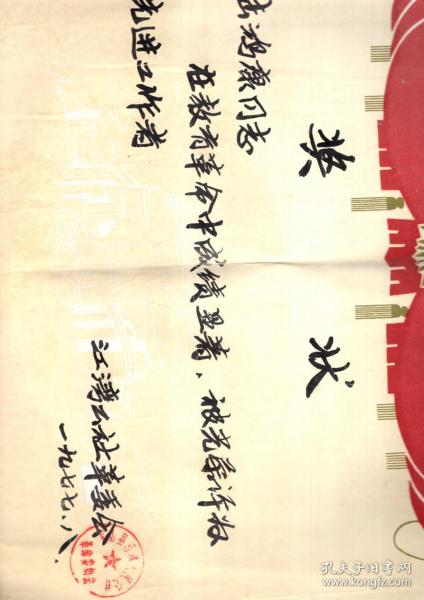 奖状
鸿康同志
在教育革命中成绩显著、被光荣评为
先进工作者
江湾公社革委会
一九七七.八.
孔夫子旧书网
www.kongfz.com